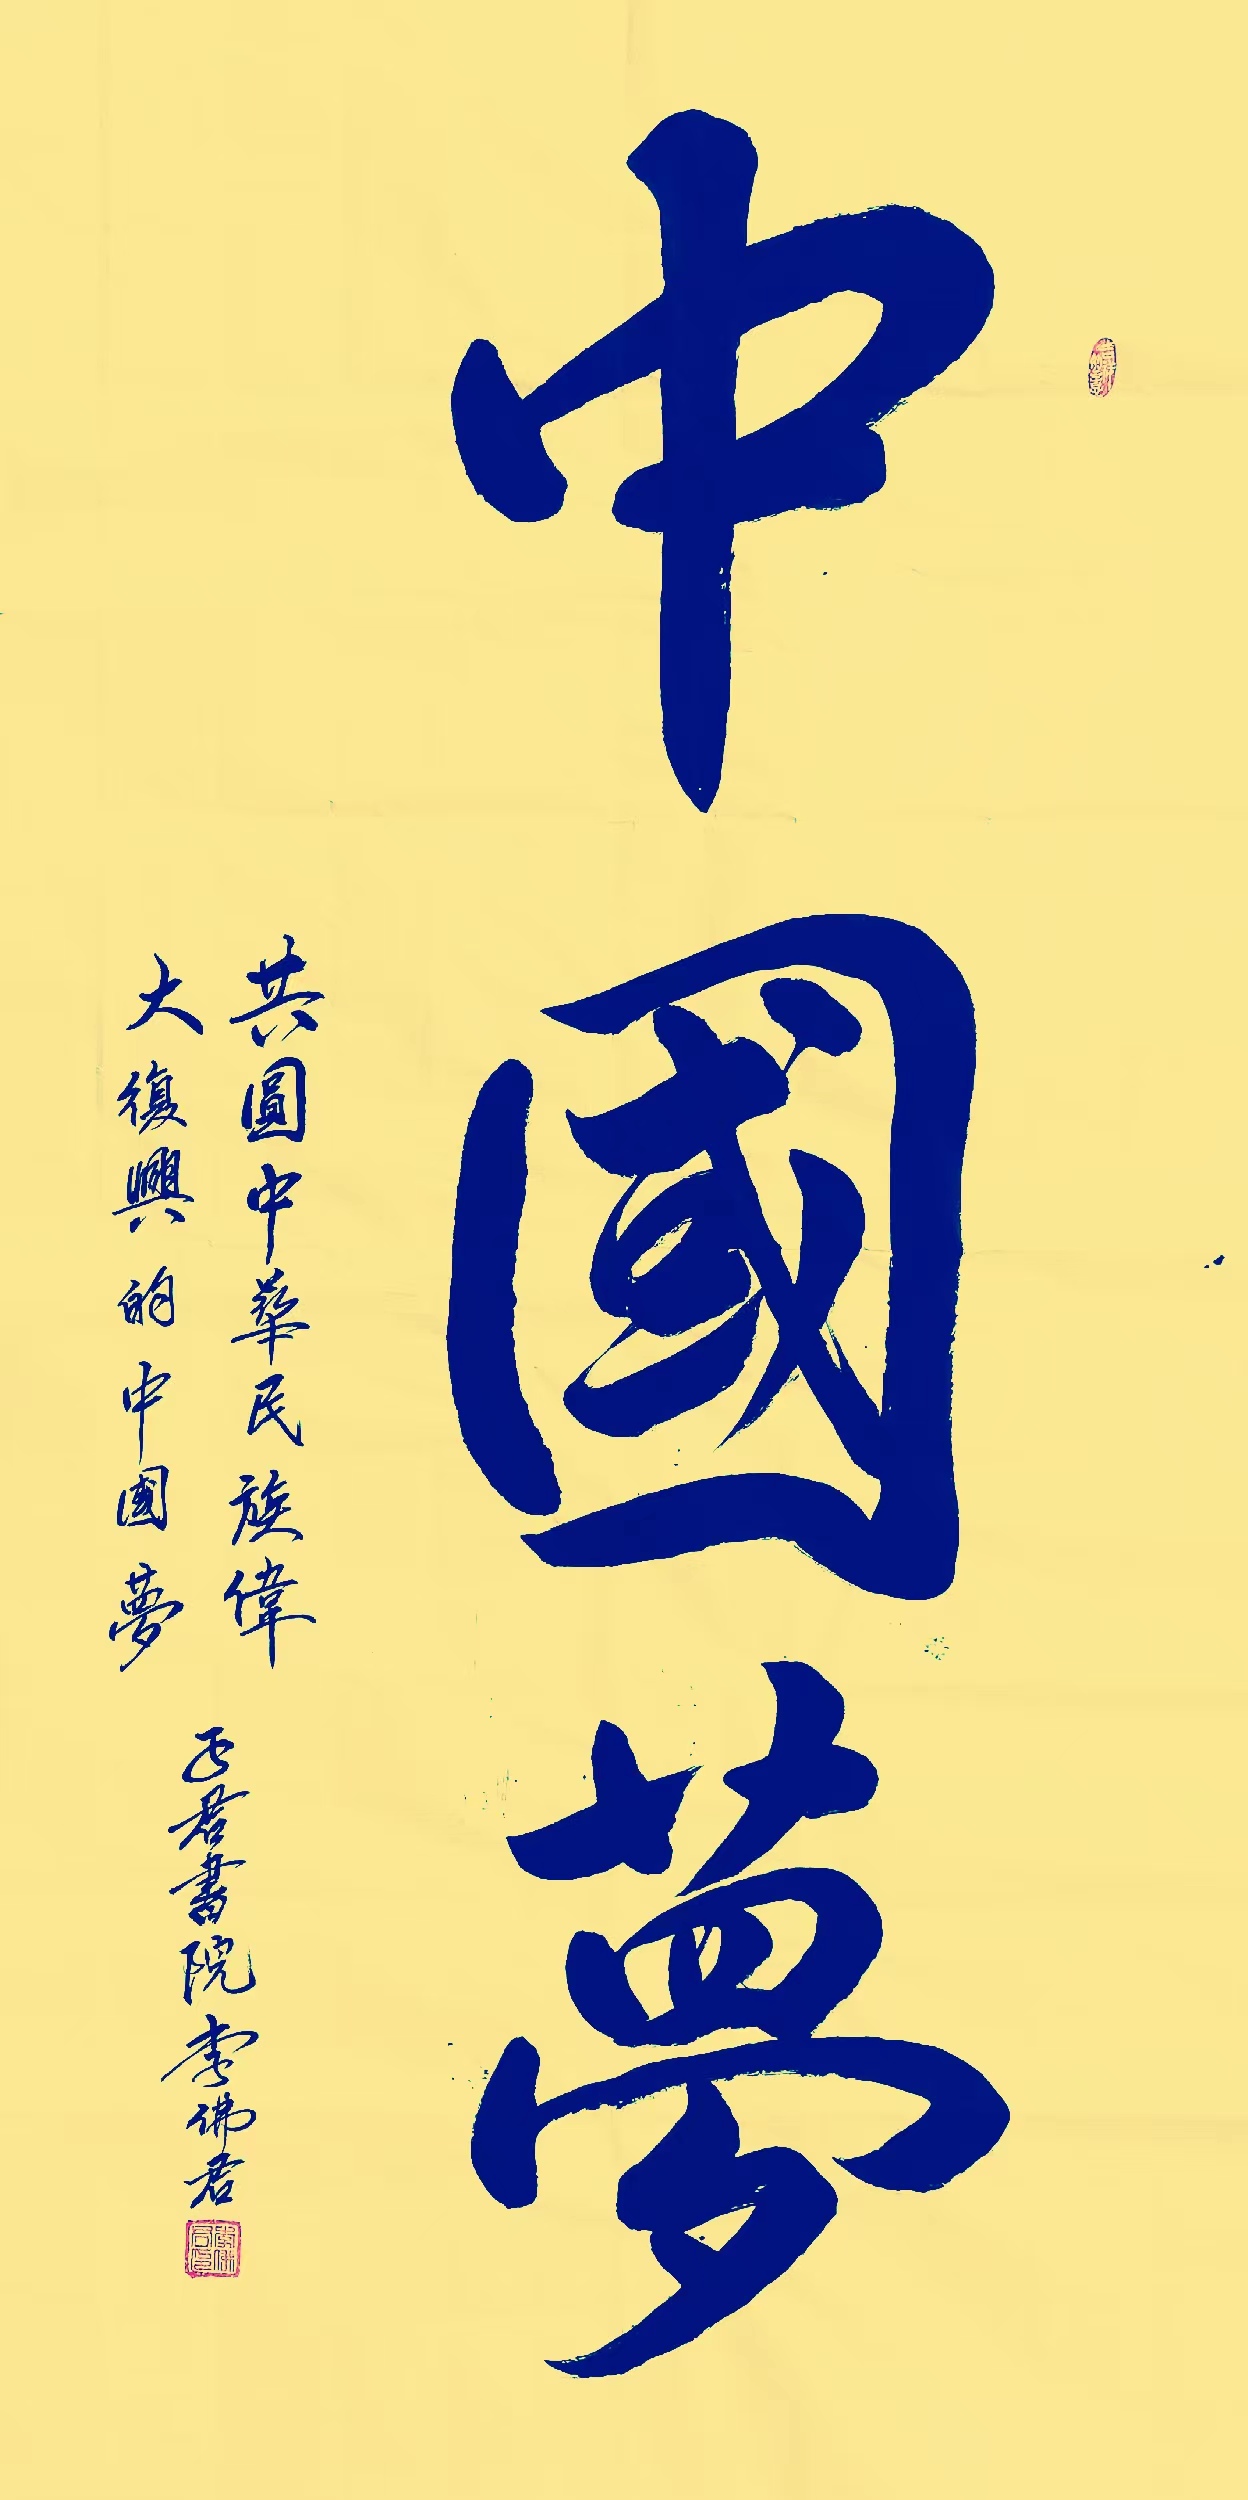 中國夢
共圓中華民族偉
大復興的中國夢
君書院李佛君